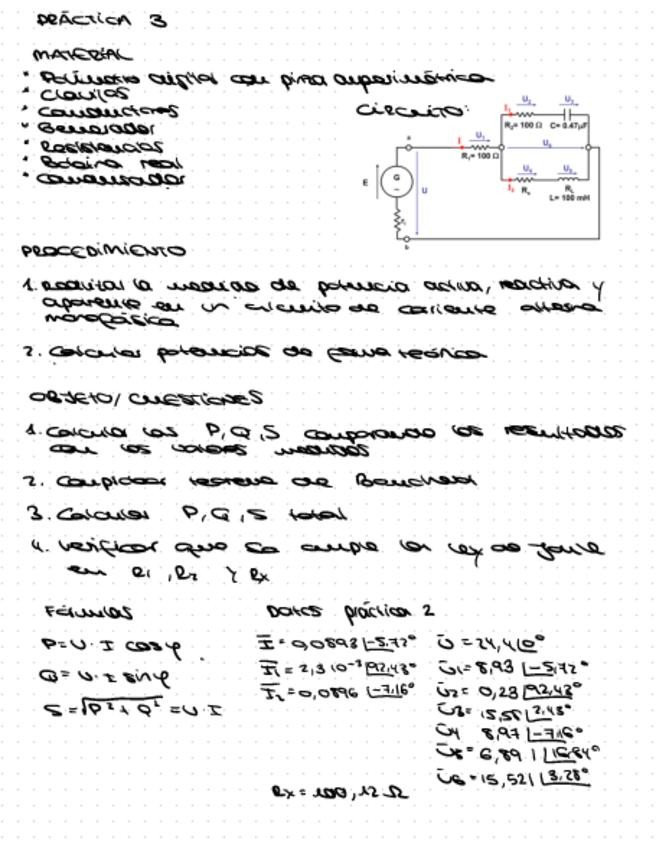 PRÁCTICA 3
MATERIAL
* Polímetro digital con pinza amperimétrica
* Clavijas
* Conductores
* Generador
* Resistencias
* Bobina real
* Condensador
CIRCUITO:
I₁ U₂ U₃
R₂= 100 Ω C= 0.47μF
a I U₁ U₆
R₁= 100 Ω
E G U
U₄ U₅
I₂ Rₓ R_L
L= 100 mH
b
PROCEDIMIENTO
1. Realizar la medida de potencia activa, reactiva y
aparente en un circuito de corriente alterna
monofásica
2. Calcular potencias de forma teórica
OBJETO/ CUESTIONES
1. Calcular las P, Q, S comparando los resultados
con los valores medidos
2. Comprobar teorema de Boucherot
3. Calcular P, Q, S total
4. Verificar que se cumple la ley de Joule
en R1, R2 y Rx
Fórmulas
P=U·I cosφ
Q= U·I sinφ
S=√P²+Q² =U·I
Datos práctica 2
I= 0,0893 |-5,72°
I₁= 2,3 10⁻³ |92,43°
I₂= 0,0896 |-7,16°
U=24,4 |0°
U1= 8,93 |-5,72°
U2= 0,23 |92,43°
U3= 15,55 |2,43°
U4 8,97 |-7,16°
U5= 6,891 |16,84°
U6=15,521 |3,28°
Rx= 100,12 Ω